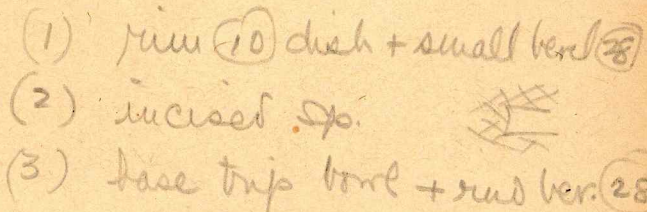 (1) rim (10) dish + small bevel (28)
(2) incised sp.
(3) base trip bowl + rud bev. (28